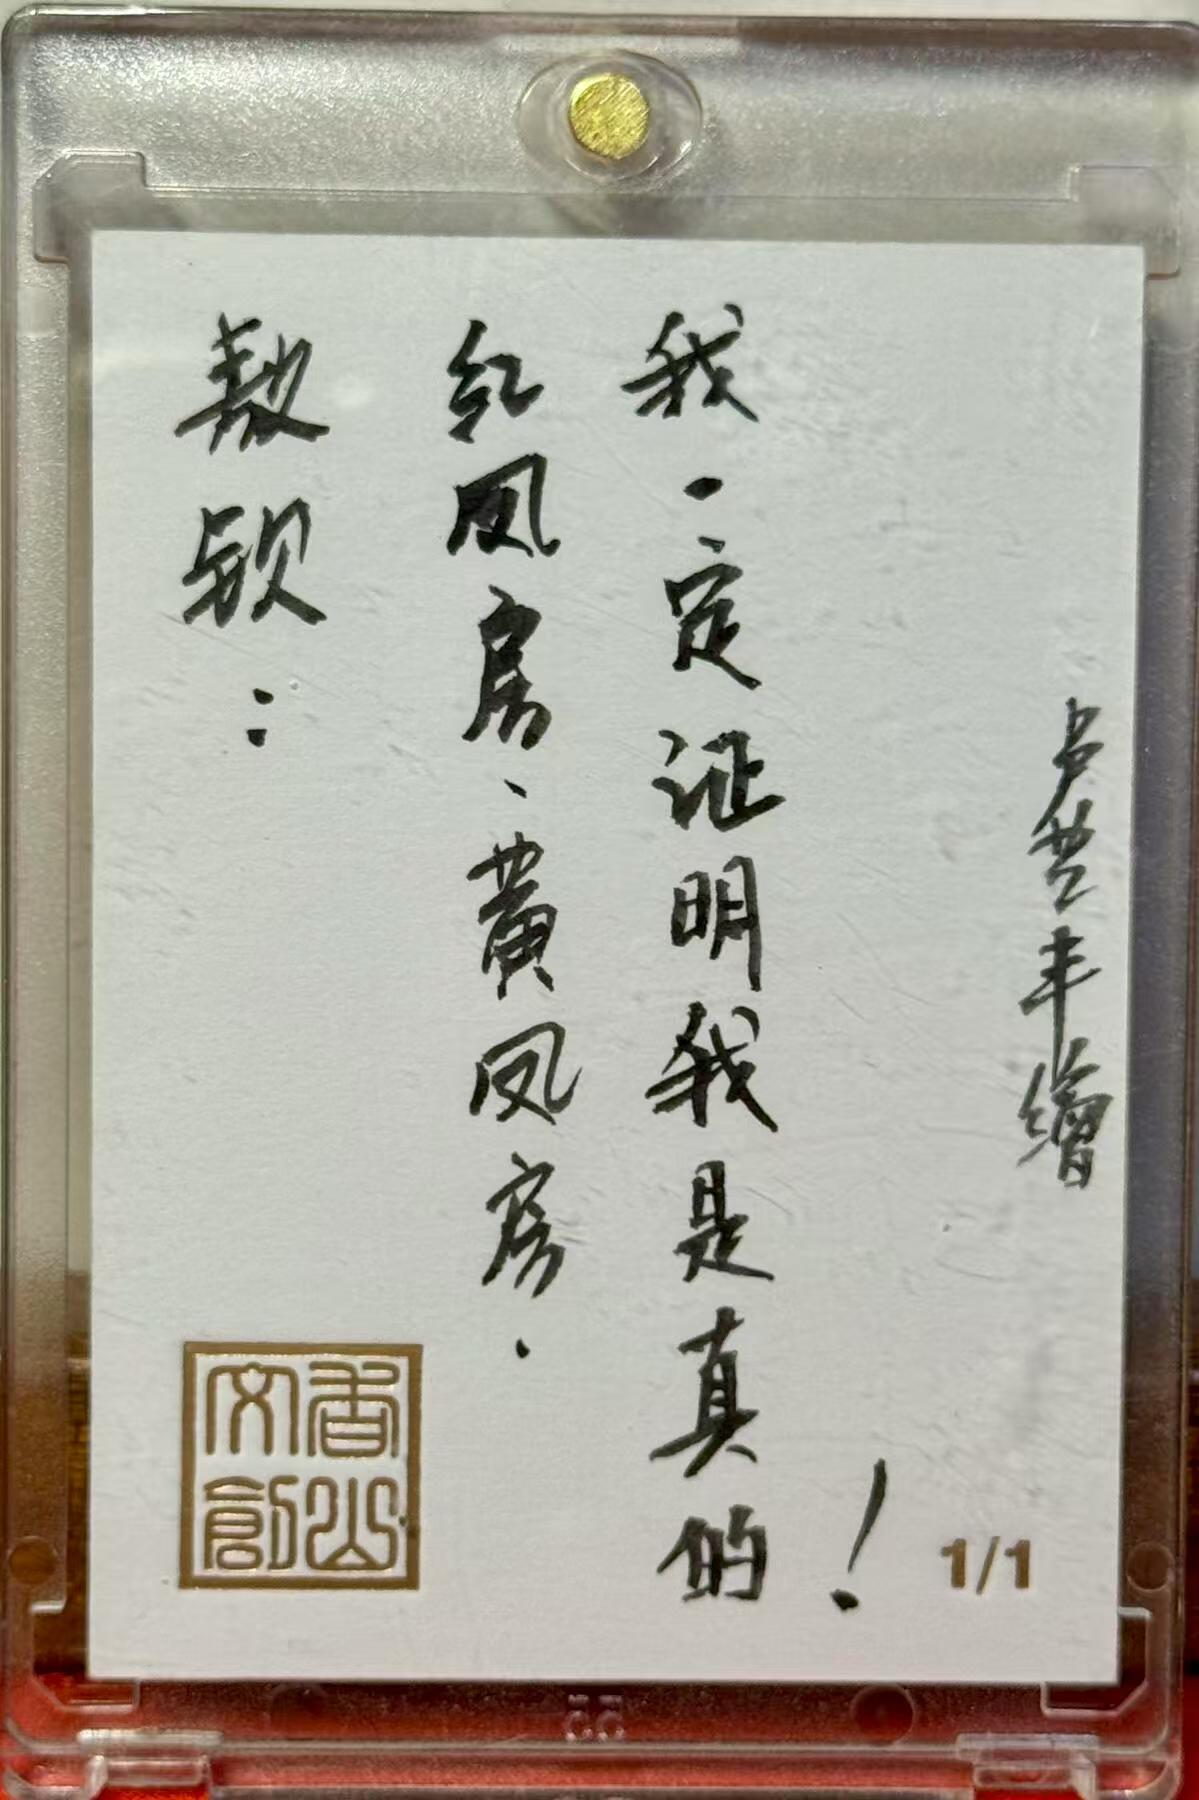 敖钦：
红凤房、黄凤房.
我一定证明我是真的！
卢丰繪
香山文創
1/1